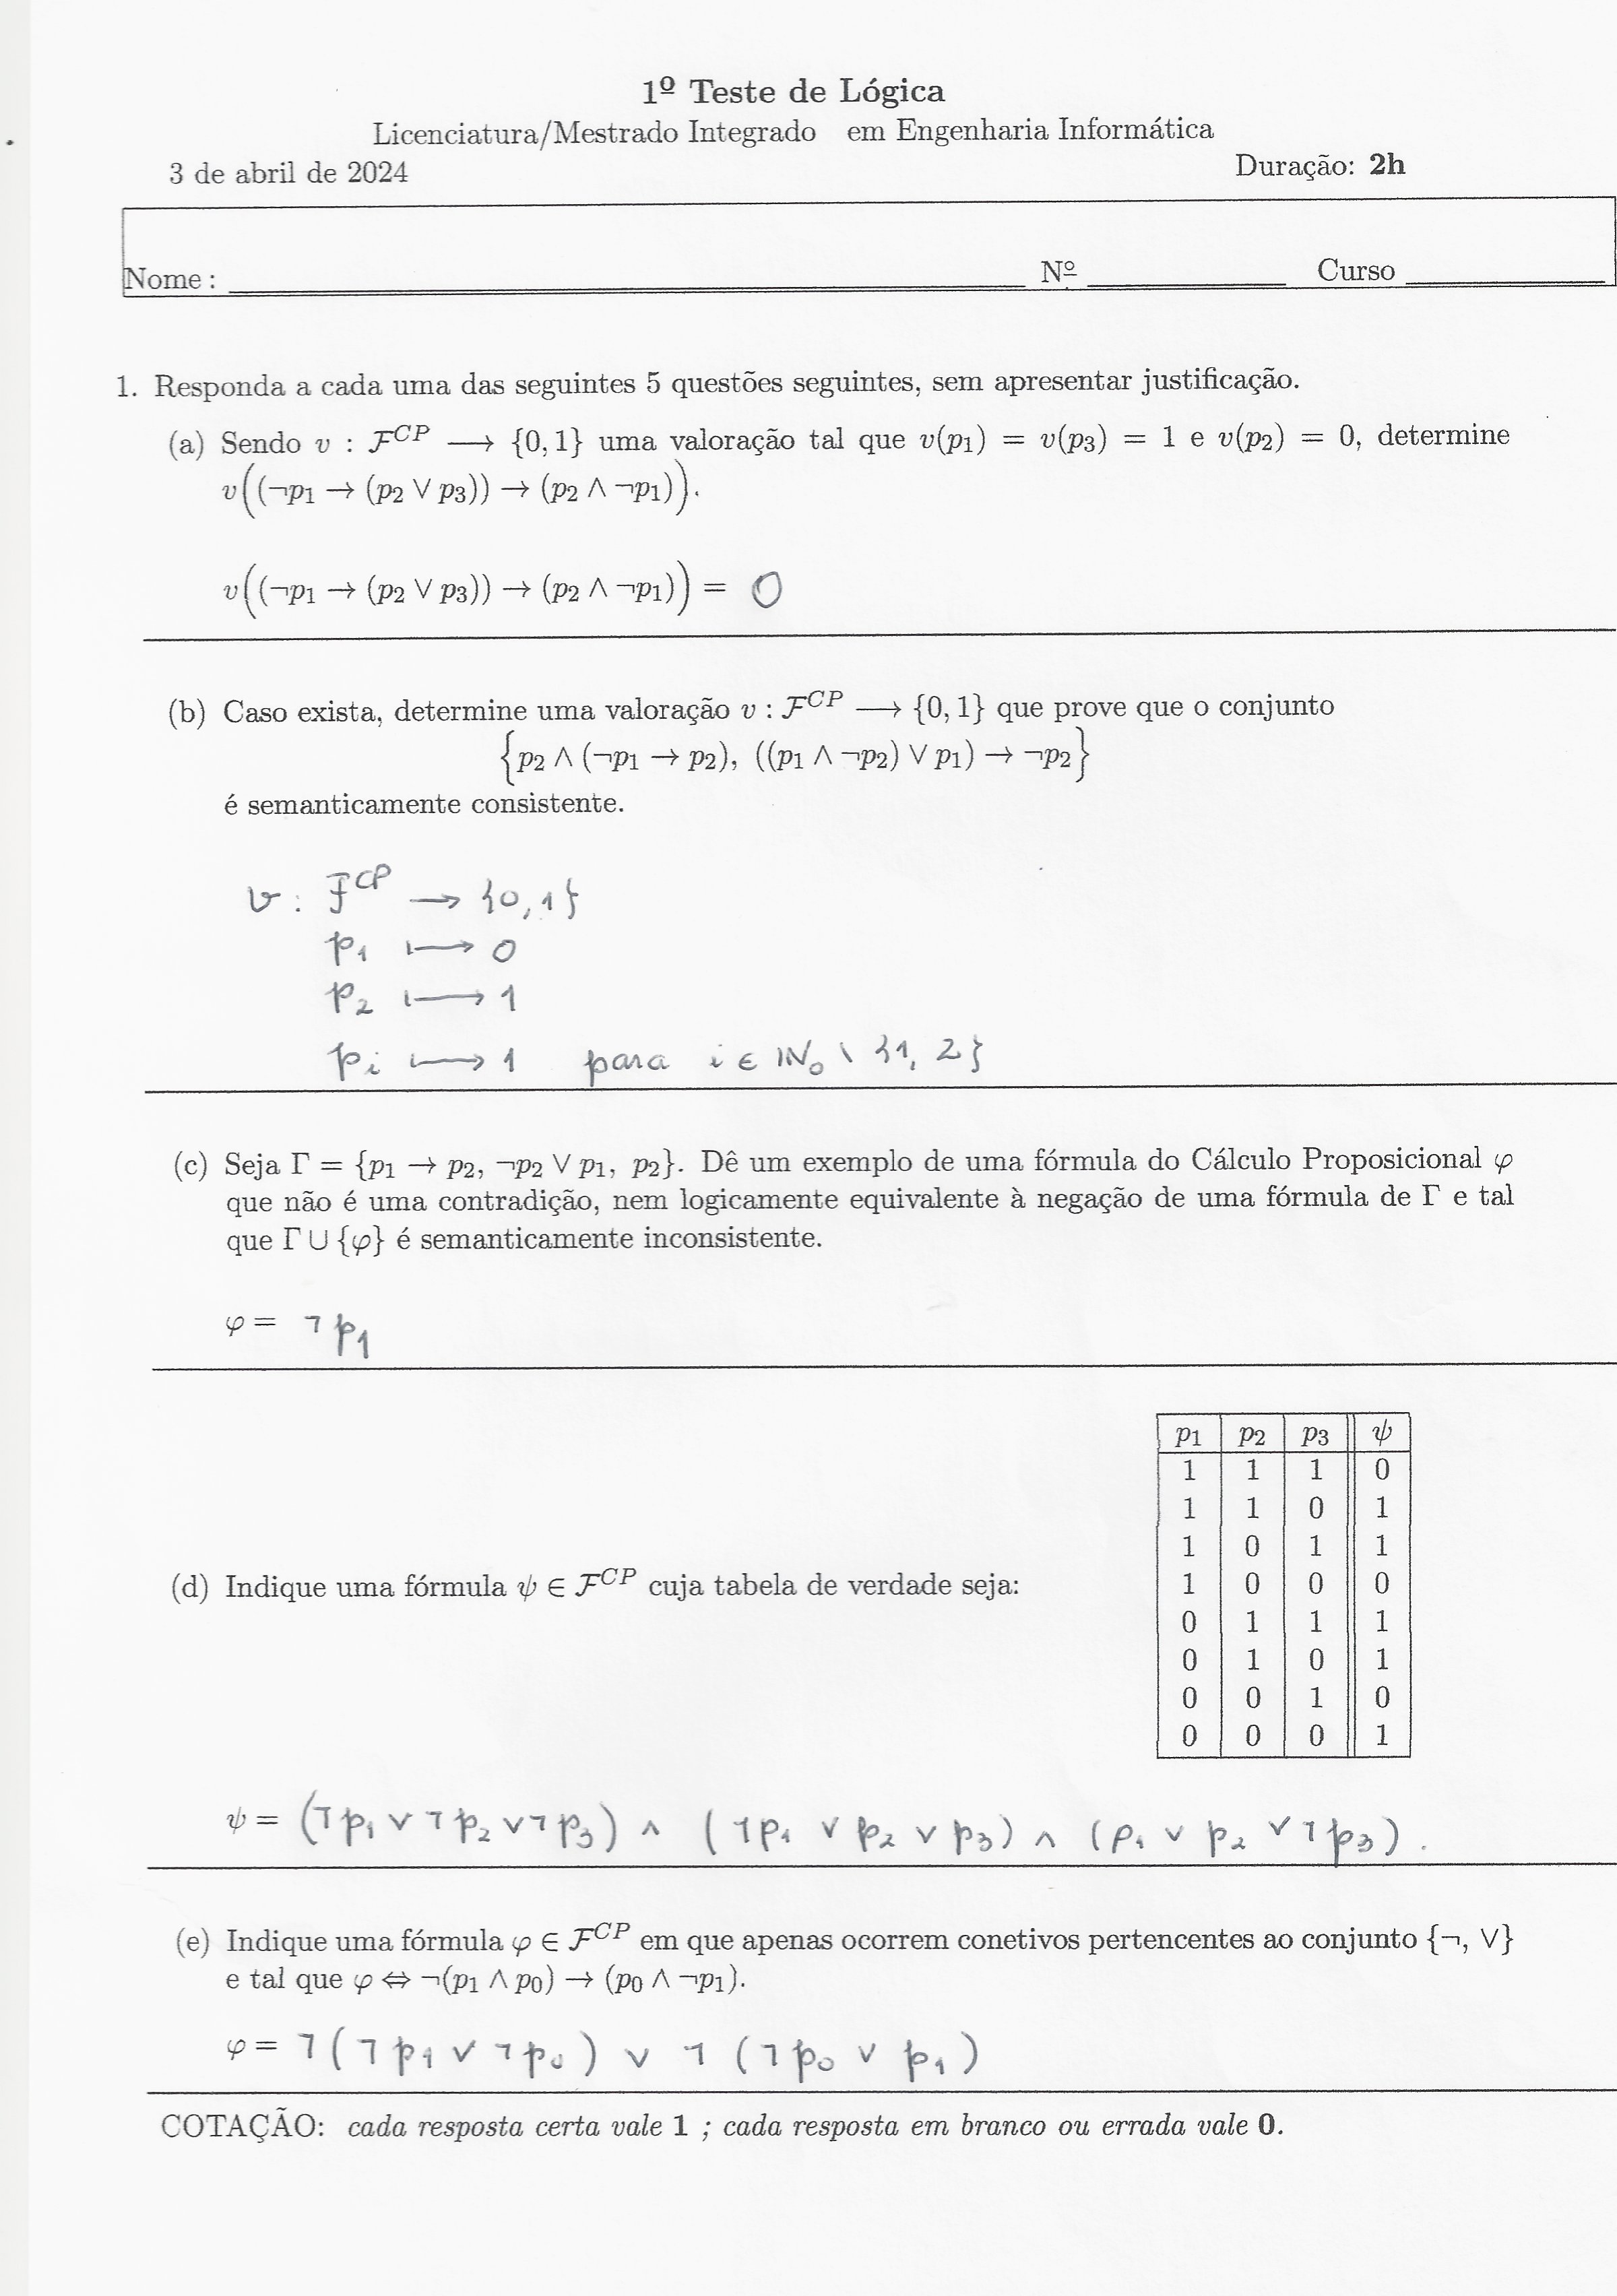 1º Teste de Lógica
Licenciatura/Mestrado Integrado em Engenharia Informática
3 de abril de 2024 Duração: 2h
Nome : Nº Curso
1. Responda a cada uma das seguintes 5 questões seguintes, sem apresentar justificação.
(a) Sendo v : ℱ^CP ⟶ {0, 1} uma valoração tal que v(p₁) = v(p₃) = 1 e v(p₂) = 0, determine
v((¬p₁ → (p₂ ∨ p₃)) → (p₂ ∧ ¬p₁)).
v((¬p₁ → (p₂ ∨ p₃)) → (p₂ ∧ ¬p₁)) = 0
(b) Caso exista, determine uma valoração v : ℱ^CP ⟶ {0, 1} que prove que o conjunto
{p₂ ∧ (¬p₁ → p₂), ((p₁ ∧ ¬p₂) ∨ p₁) → ¬p₂}
é semanticamente consistente.
v : ℱ^CP ⟶ {0, 1}
p₁ ⟼ 0
p₂ ⟼ 1
pᵢ ⟼ 1 para i ∈ ℕ₀ \ {1, 2}
(c) Seja Γ = {p₁ → p₂, ¬p₂ ∨ p₁, p₂}. Dê um exemplo de uma fórmula do Cálculo Proposicional φ
que não é uma contradição, nem logicamente equivalente à negação de uma fórmula de Γ e tal
que Γ ∪ {φ} é semanticamente inconsistente.
φ = ¬p₁
p₁ p₂ p₃ ψ
1 1 1 0
1 1 0 1
1 0 1 1
1 0 0 0
(d) Indique uma fórmula ψ ∈ ℱ^CP cuja tabela de verdade seja:
0 1 1 1
0 1 0 1
0 0 1 0
0 0 0 1
ψ = (¬p₁ ∨ ¬p₂ ∨ ¬p₃) ∧ (¬p₁ ∨ p₂ ∨ p₃) ∧ (p₁ ∨ p₂ ∨ ¬p₃).
(e) Indique uma fórmula φ ∈ ℱ^CP em que apenas ocorrem conetivos pertencentes ao conjunto {¬, ∨}
e tal que φ ⇔ ¬(p₁ ∧ p₀) → (p₀ ∧ ¬p₁).
φ = ¬(¬p₁ ∨ ¬p₀) ∨ ¬(¬p₀ ∨ p₁)
COTAÇÃO: cada resposta certa vale 1 ; cada resposta em branco ou errada vale 0.